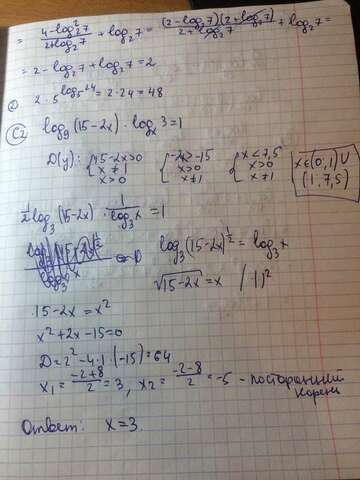 = (4-log₂²7)/(2+log₂7) + log₂7 = ((2-log₂7)(2+log₂7))/(2+log₂7) + log₂7 =
= 2-log₂7+log₂7=2
2) 2·5^(log₅24)=2·24=48
C2 log₉(15-2x)·logₓ3=1
D(y): {15-2x>0 x≠1 x>0 {-2x>-15 x>0 x≠1 {x<7,5 x>0 x≠1 x∈(0,1)∪(1,7,5)
½log₃(15-2x)·1/(log₃x)=1
log₃(15-2x)^½=log₃x
√(15-2x)=x /()²
15-2x=x²
x²+2x-15=0
D=2²-4·1·(-15)=64
x₁=(-2+8)/2=3, x₂=(-2-8)/2=-5 - посторонний
корень
Ответ: x=3.